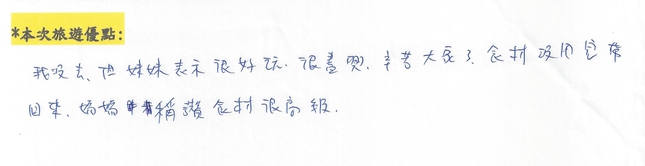 *本次旅遊優點:
我沒去,但妹妹表示很好玩.很盡興.辛苦大家了.食材沒用完帶
回來,媽媽稱讚食材很高級.